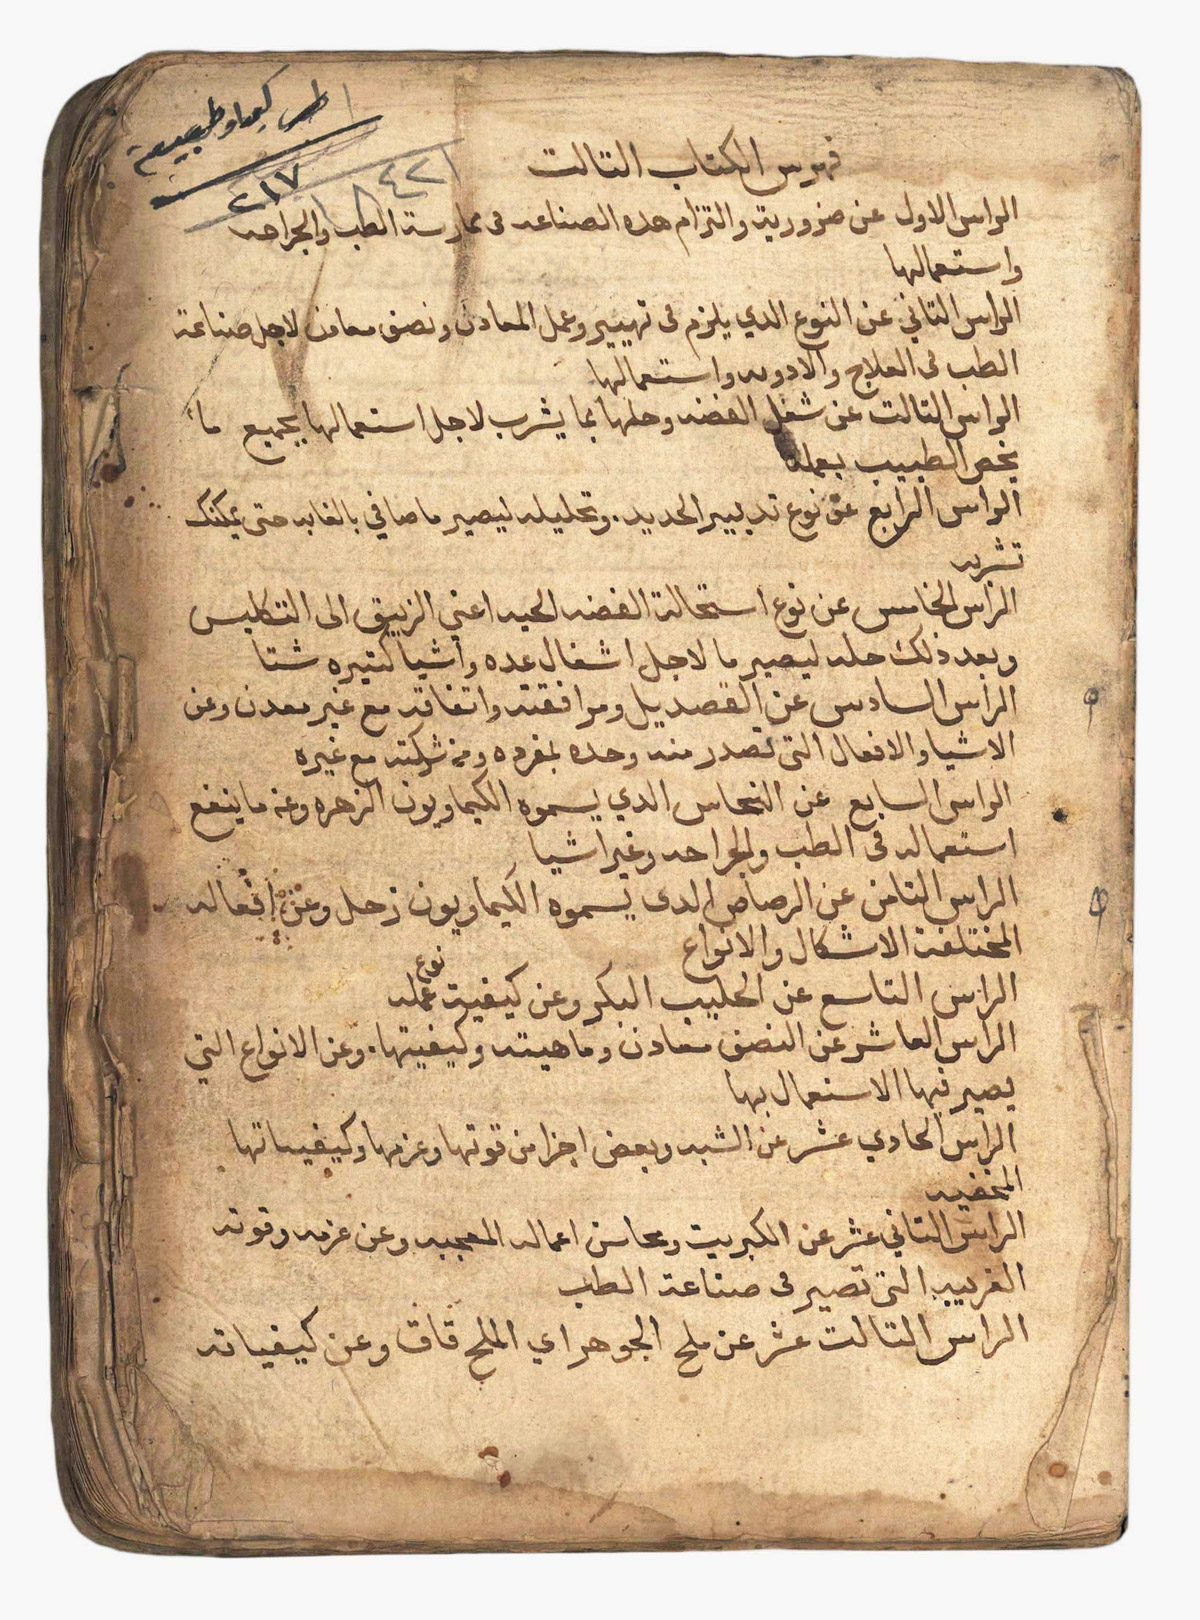 طب كيميا وطبيعة
٢١٧
٨٤٢
فهرس الكتاب التالت
الراس الاول عن ضرورية والتزام هذه الصناعه فى ممارسة الطب والجراحه
واستعمالها
الراس التاني عن النوع الدي يلزم فى تهيير وعمل المعادن ونصف معادن لاجل صناعة
الطب فى العلاج والادويه واستعمالها
الراس التالت عن شغل الفضه وحلها بما يشرب لاجل استعمالها بجميع ما
يخص الطبيب بعمله
الراس الرابع عن نوع تدبير الحديد. وتحليله ليصير ما صافي بالغايه حتى يمكنك
تشربه
الراس الخامس عن نوع استحالة الفضه الحيه اعني الزيبق الى التكليس
وبعد ذلك حله ليصير ما لاجل اشغال عده واشيا كتيره شتا
الراس السادس عن القصديل وموافقته واتفاقه مع غير معدن وعن
الاشيا والافعال التى تصدر منه وحده بمفرده ومن شركته مع غيره
الراس السابع عن النحاس الدي يسموه الكيماويون الزهره وعن ما ينفع
استعماله فى الطب والجراحه وغير اشيا
الراس التامن عن الرصاص الدى يسموه الكيماويون زحل وعن افعاله
المختلفة الاشكال والانواع
الراس التاسع عن الحليب البكر وعن كيفية نوع عمله
الراس العاشر عن النصف معادن وماهيته وكيفيتها. وعن الانواع التي
يصير فيها الاستعمال بها
الراس الحادي عشر عن الشبه وبعض اجزا من قوتها وعزمها وكيفياتها
المخفيه
الراس التاني عشر عن الكبريت ومحاسن اعماله المعجبه وعن عزمه وقوته
الغريبه التى تصير فى صناعة الطب
الراس التالت عشر عن ملح الجوهر اي الملح قاق وعن كيفياته